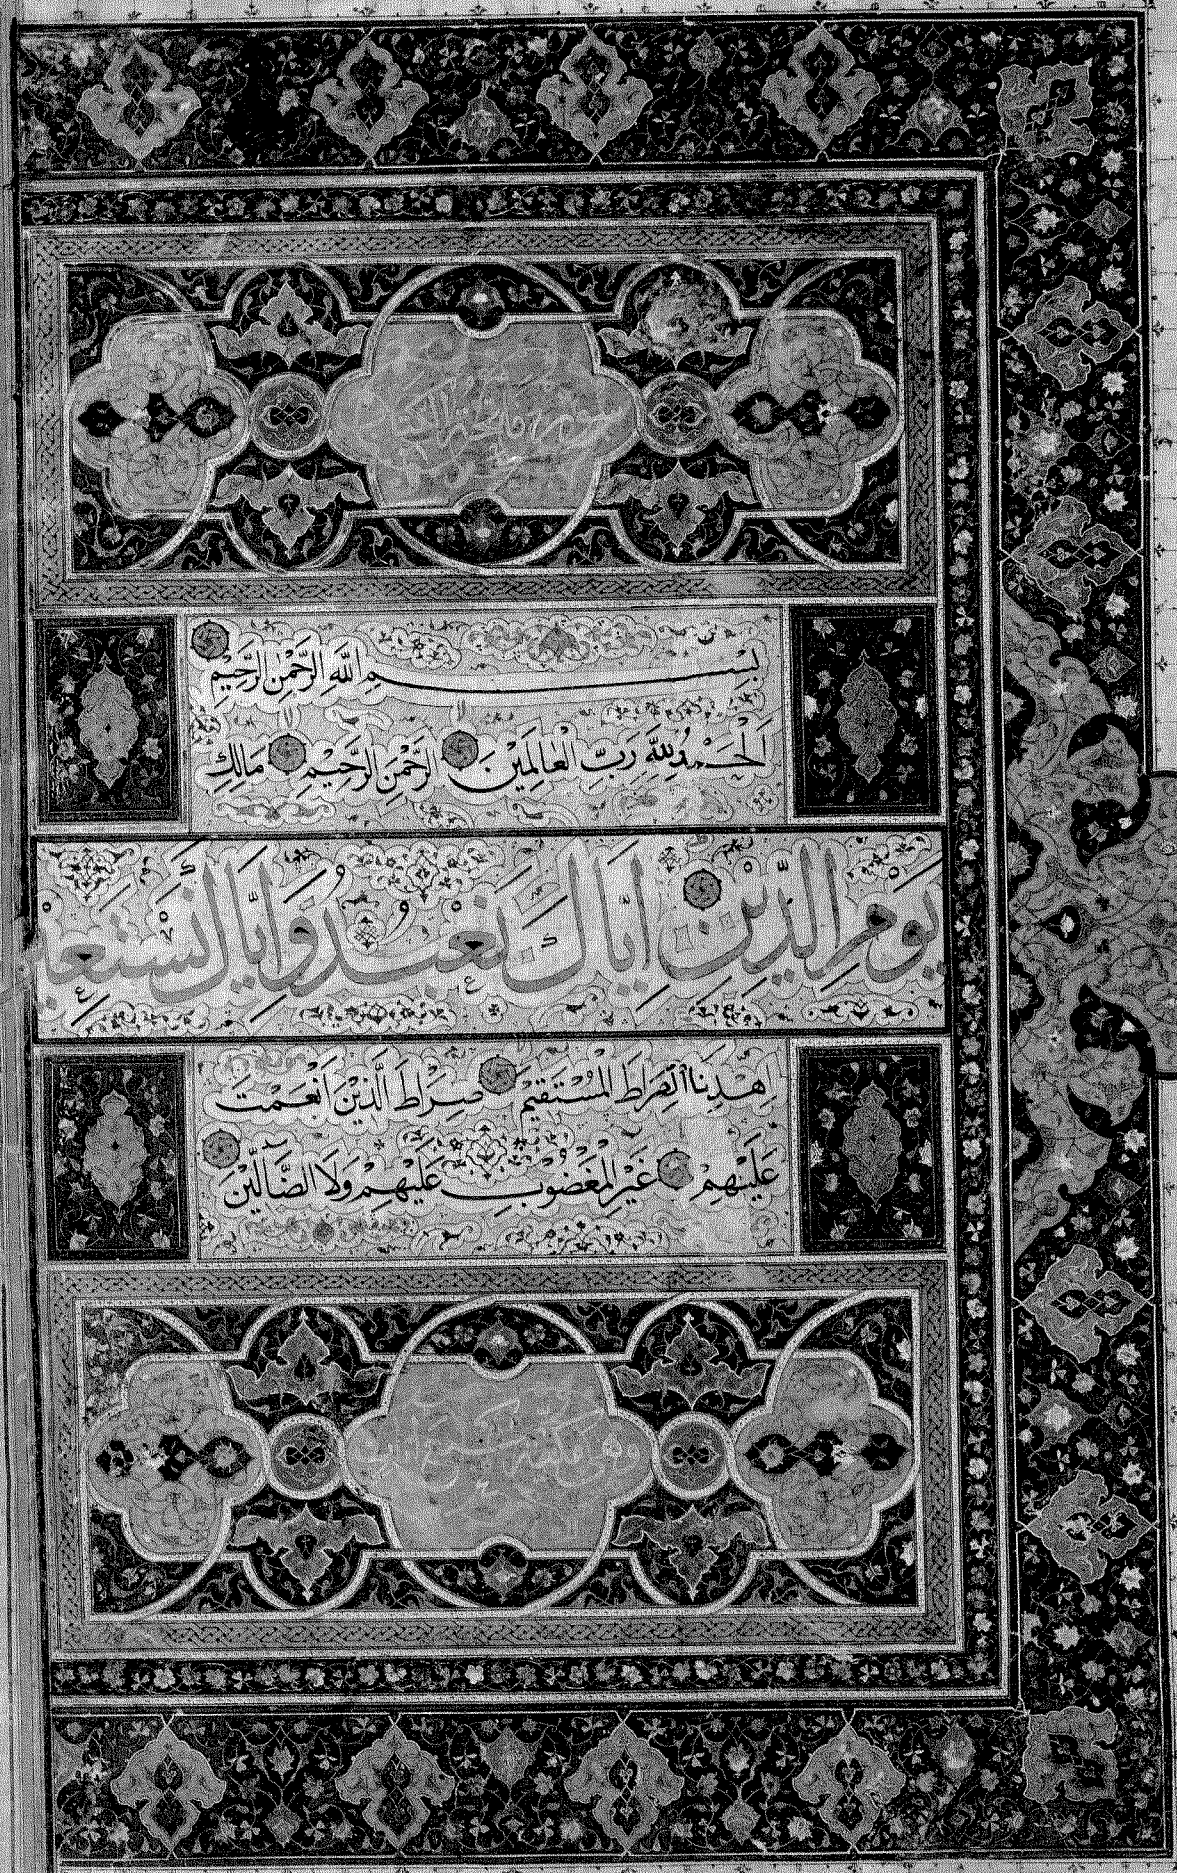 سورة فاتحة الكتاب
بِسْمِ اللَّهِ الرَّحْمٰنِ الرَّحِيْمِ
اَلْحَمْدُ لِلّٰهِ رَبِّ الْعَالَمِيْنَ الرَّحْمٰنِ الرَّحِيْمِ مَالِكِ
يَوْمِ الدِّيْنِ اِيَّاكَ نَعْبُدُ وَاِيَّاكَ نَسْتَعِيْ
اِهْدِنَا الصِّرَاطَ الْمُسْتَقِيْمَ صِرَاطَ الَّذِيْنَ اَنْعَمْتَ
عَلَيْهِمْ غَيْرِ الْمَغْضُوْبِ عَلَيْهِمْ وَلَا الضَّالِّيْنَ